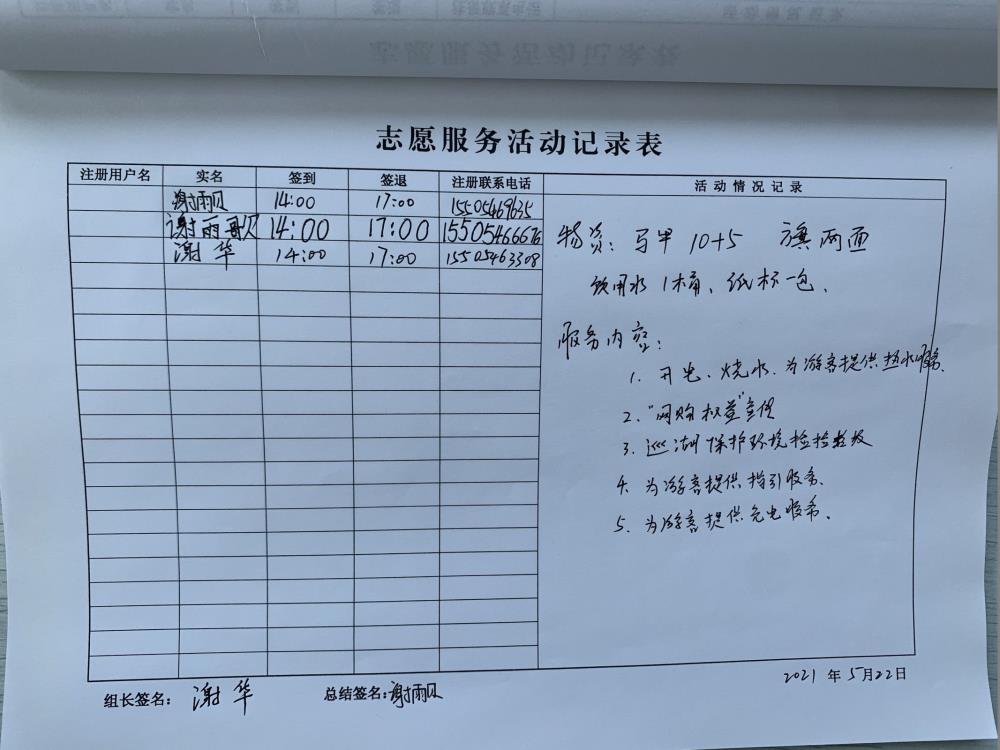 志愿服务活动记录表
注册用户名 实名 签到 签退 注册联系电话 活动情况记录
谢雨贝 14:00 17:00 15505469635
谢雨 14:00 17:00 15505466676
谢华 14:00 17:00 15505463308
物资：马甲 10+5 旗两面
饮用水 1桶、纸杯一包、
服务内容：
1、开电、烧水、为游客提供热水服务、
2、“网购权益”宣传
3、巡湖保护环境捡捡垃圾
4、为游客提供指引服务、
5、为游客提供充电服务、
2021 年 5月22日
组长签名： 谢华 总结签名：谢雨贝